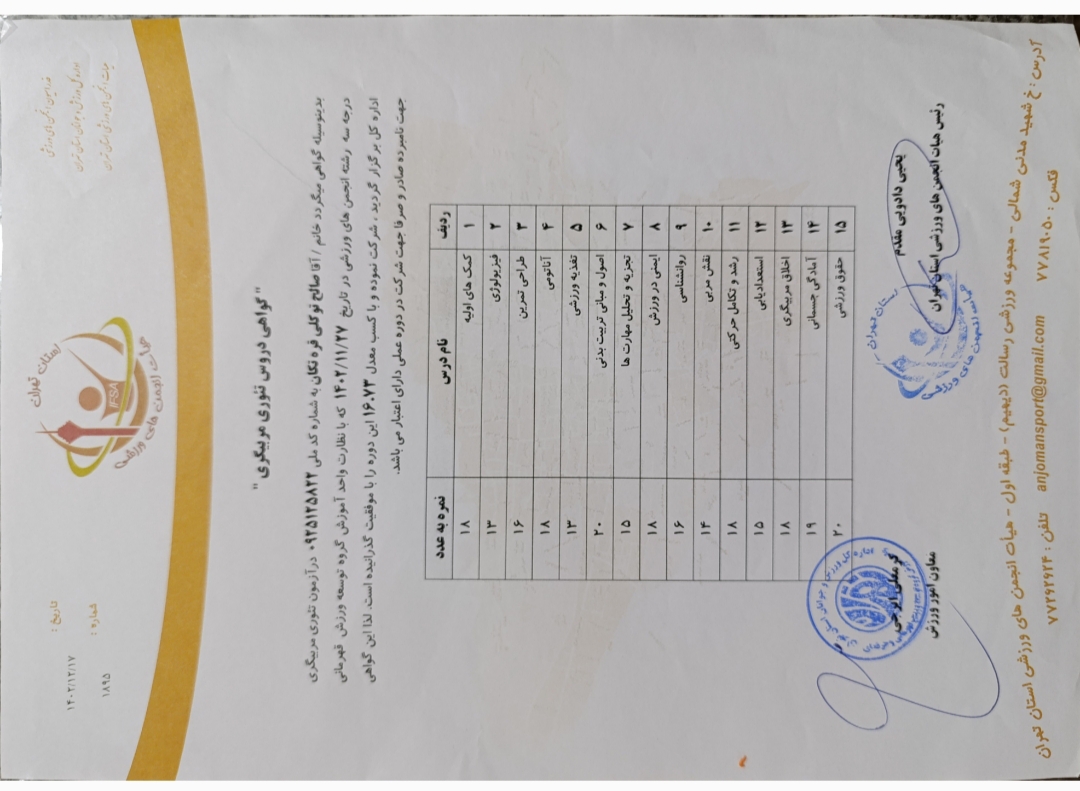 استان تهران
هیات انجمن های ورزشی
IFSA
هیات انجمن های ورزشی استان تهران
تاریخ : ۱۴۰۲/۱۲/۱۷
شماره : ۱۸۹۵
" گواهی دروس تئوری مربیگری "
بدینوسیله گواهی میگردد خانم / آقا صالح توکلی قره تکان به شماره کد ملی ۰۹۲۵۱۲۵۸۲۲ در آزمون تئوری مربیگری
درجه سه رشته انجمن های ورزشی در تاریخ ۱۴۰۲/۱۱/۲۷ که با نظارت واحد آموزش گروه توسعه ورزش قهرمانی
اداره کل برگزار گردید ، شرکت نموده و با کسب معدل ۱۶.۷۳ این دوره را با موفقیت گذرانیده است. لذا این گواهی
جهت نامبرده صادر و صرفا جهت شرکت در دوره عملی دارای اعتبار می باشد.
ردیف نام درس نمره به عدد
۱ کمک های اولیه ۱۸
۲ فیزیولوژی ۱۳
۳ طراحی تمرین ۱۶
۴ آناتومی ۱۸
۵ تغذیه ورزشی ۱۳
۶ اصول و مبانی تربیت بدنی ۲۰
۷ تجزیه و تحلیل مهارت ها ۱۵
۸ ایمنی در ورزش ۱۸
۹ روانشناسی ۱۶
۱۰ نقش مربی ۱۴
۱۱ رشد و تکامل حرکتی ۱۸
۱۲ استعدادیابی ۱۵
۱۳ اخلاق مربیگری ۱۸
۱۴ آمادگی جسمانی ۱۹
۱۵ حقوق ورزشی ۲۰
یحیی دادویی مقدم
رئیس هیات انجمن های ورزشی استان تهران
معاون امور ورزش
آدرس : خ شهید مدنی شمالی - مجموعه ورزشی رسالت (دیهیم) - طبقه اول - هیأت انجمن های ورزشی استان تهران
تلفن : ۷۷۲۹۲۶۲۴ anjomansport@gmail.com فکس : ۷۷۸۱۹۰۵۰